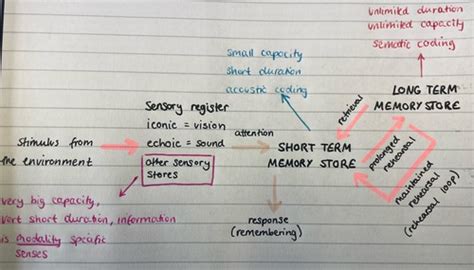 unlimited duration
unlimited capacity
sematic coding
small capacity
short duration
acoustic coding
LONG TERM
MEMORY STORE
Sensory register
iconic = vision
echoic = sound
other sensory
stores
Stimulus from
the environment
attention
SHORT TERM
MEMORY STORE
retrieval
prolonged
rehearsal
maintained
rehearsal
(rehearsal loop)
response
(remembering)
very big capacity,
vert short duration, information
is modality specific
senses